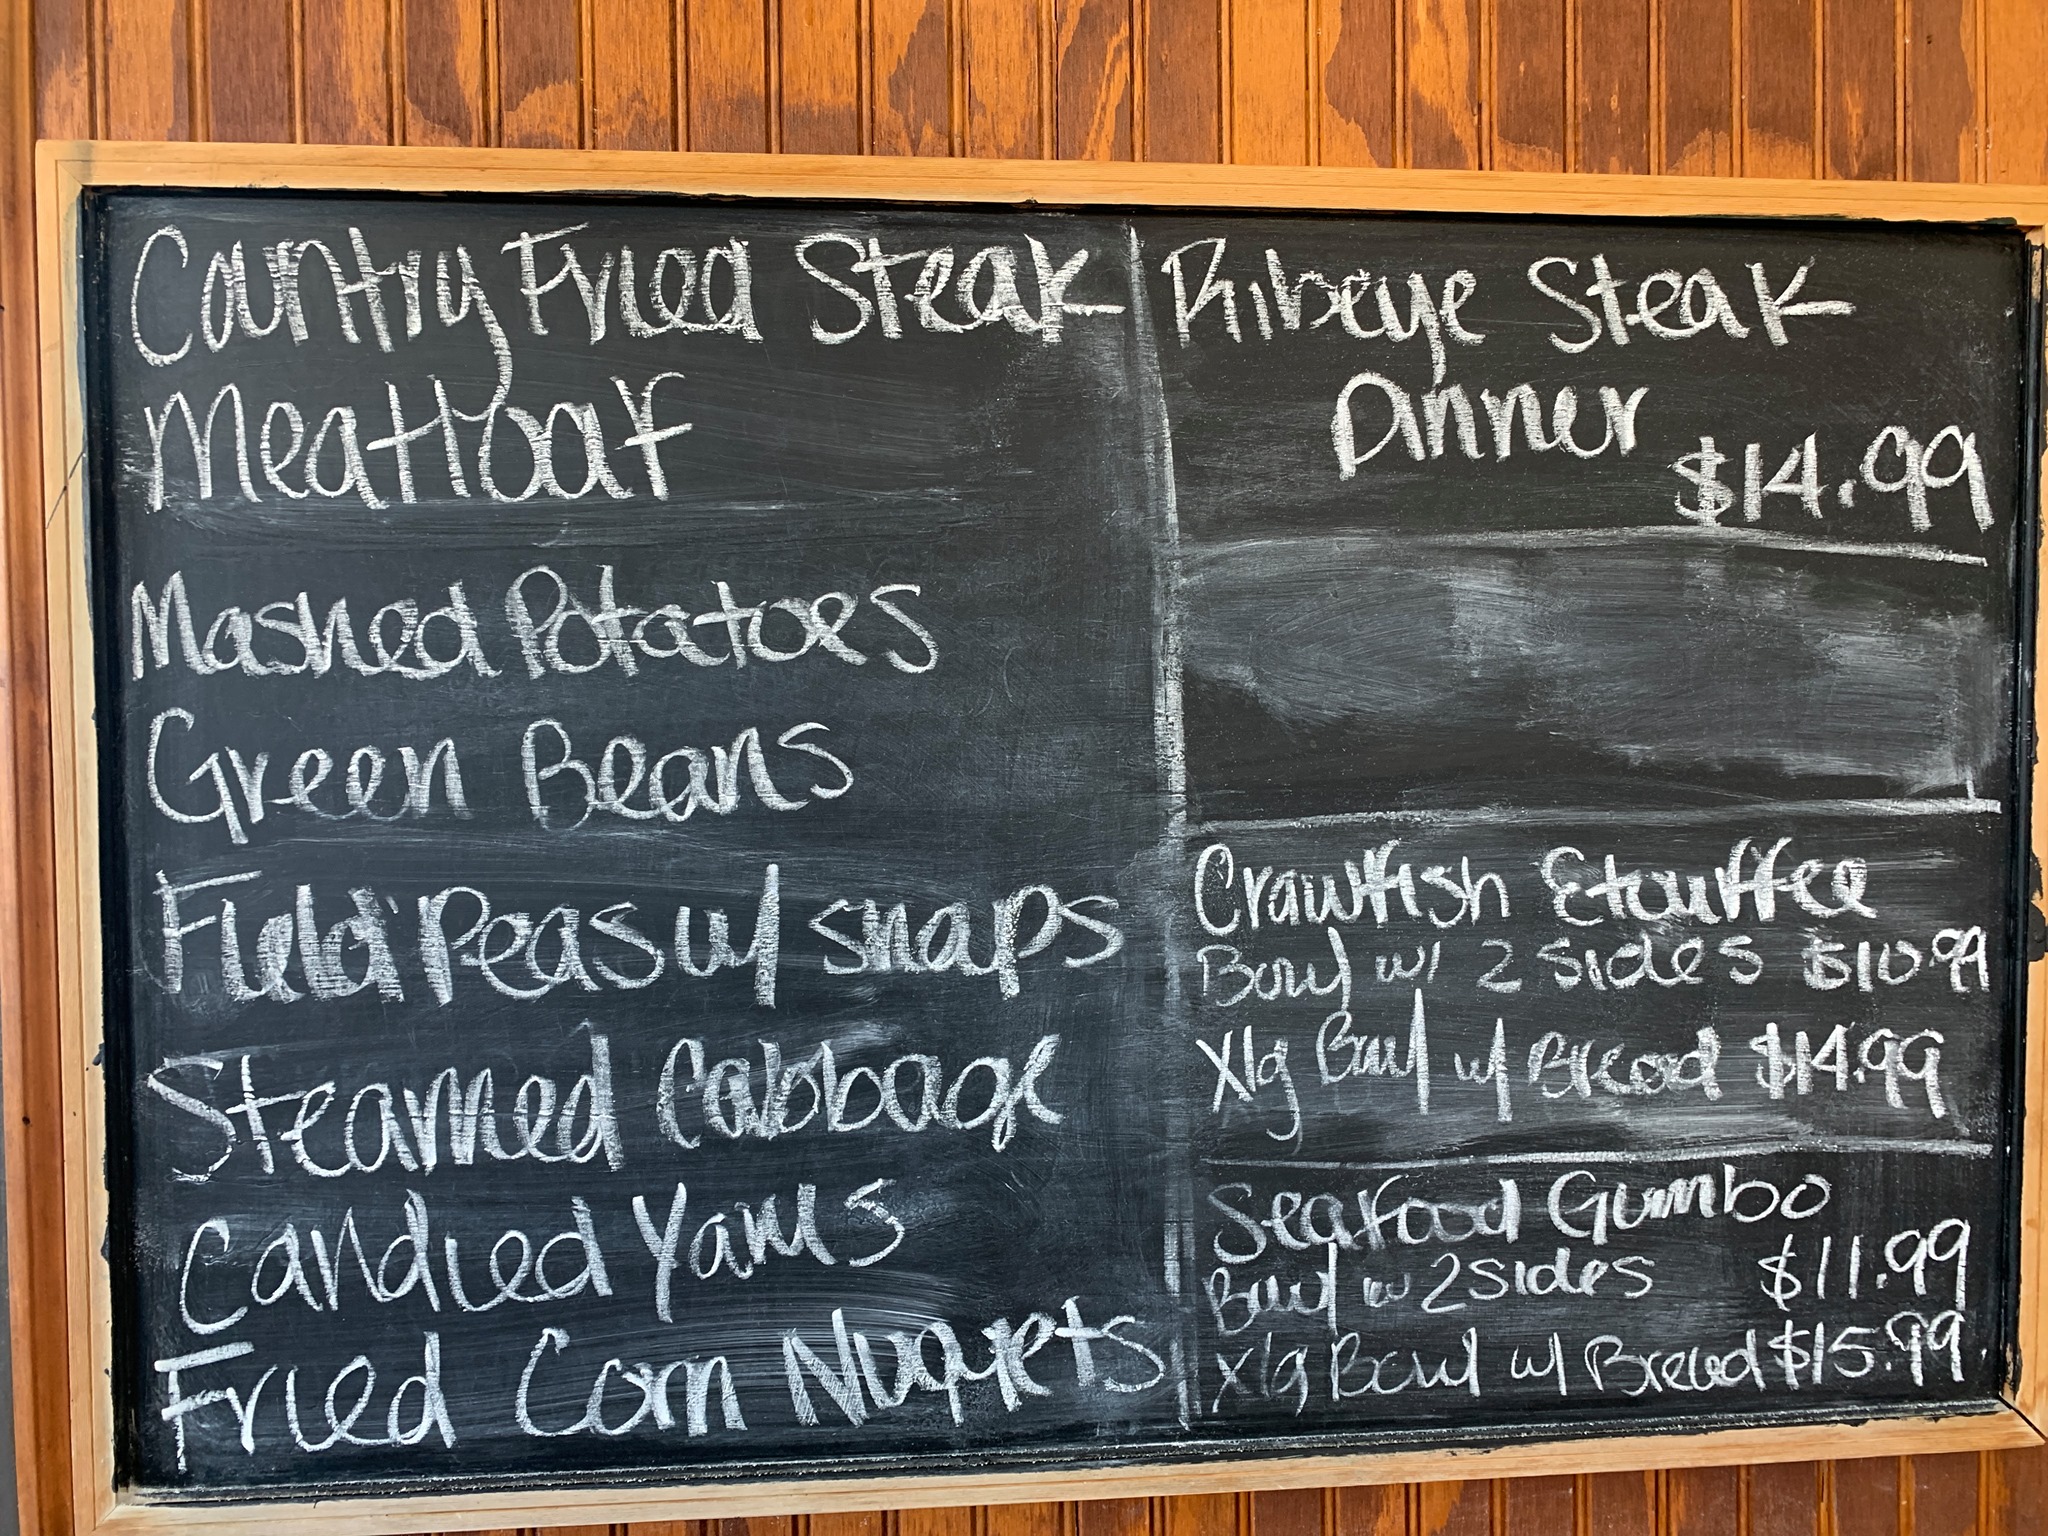 Country Fried Steak
Meatloaf
Mashed Potatoes
Green Beans
Field Peas w/ snaps
Steamed Cabbage
Candied Yams
Fried Corn Nuggets
Ribeye Steak
Dinner
$14.99
Crawfish Etouffee
Bowl w/ 2 sides $10.99
Xlg Bowl w/ Bread $14.99
Seafood Gumbo
Bowl w 2 sides $11.99
Xlg Bowl w/ Bread $15.99